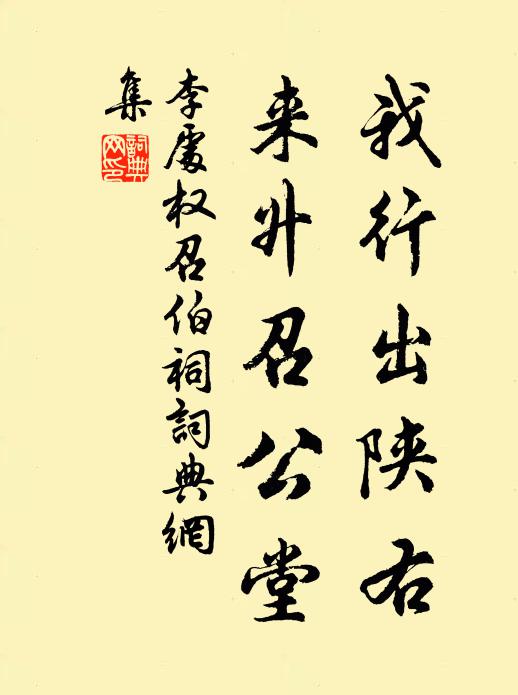 我行出陕右
来升召公堂
李處权召伯祠詞典網
集
詞典
网印